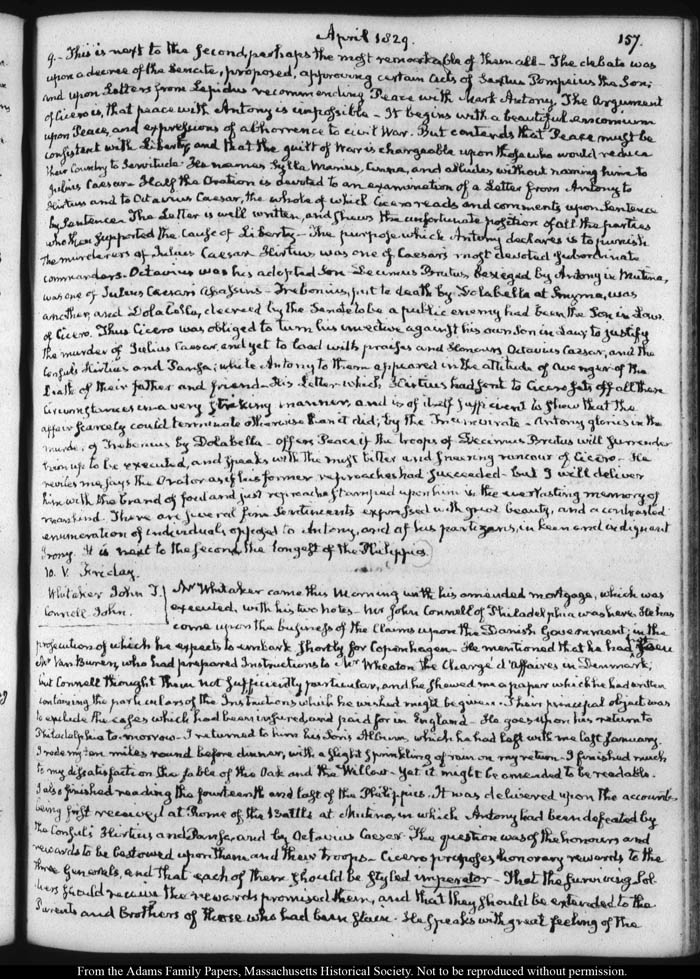 April 1829.
157.
9.- This is next to the second, perhaps the most remarkable of them all - The debate was
upon a decree of the Senate, proposed, approving certain acts of Sextus Pompeius the Son;
and upon Letters from Lepidus recommending Peace with Mark Antony. The Argument
of Cicero is, that peace with Antony is impossible - It begins with a beautiful encomium
upon Peace, and expressions of abhorrence to civil War. But contends that Peace must be
consistent with Liberty, and that the guilt of War is chargeable upon those who would reduce
their Country to Servitude. He names Sylla, Marius, Cinna, and alludes without naming him to
Julius Caesar. Half the Oration is devoted to an examination of a Letter from Antony to
Hirtius and to Octavius Caesar, the whole of which Cicero reads and comments upon Sentence
by Sentence - The Letter is well written, and shews the unfortunate position of all the parties
who then supported the Cause of Liberty - The purpose which Antony declares is to punish
the murderers of Julius Caesar. Hirtius was one of Caesar's most devoted subordinate
commanders. Octavius was his adopted Son - Decimus Brutus, besieged by Antony in Mutina,
was one of Julius Caesar's assassins - Trebonius, put to death by Dolabella at Smyrna, was
another, and Dolabella, decreed by the Senate to be a public enemy had been the Son in Law
of Cicero. Thus Cicero was obliged to turn his invective against his own Son in Law to justify
the murder of Julius Caesar, and yet to load with praises and Honours Octavius Caesar, and the
Consuls Hirtius and Pansa; while Antony to them appeared in the attitude of avenger of the
Death of their father and friend - His Letter which Hirtius had sent to Cicero sets off all these
circumstances in a very striking manner, and is of itself sufficient to show that the
affair scarcely could terminate otherwise than it did; by the Triumvirate - Antony glories in the
murder of Trebonius by Dolabella - offers Peace if the troops of Decimus Brutus will surrender
him up to be executed, and speaks with the most bitter and sneering rancour of Cicero - He
reviles me, says the Orator as if his former reproaches had succeeded - but I will deliver
him with the brand of foul and just reproach stamped upon him to the everlasting memory of
mankind. There are several fine Sentiments expressed with great beauty, and a contrasted
enumeration of individuals opposed to Antony, and of his partizans, in keen and indignant
Irony. It is next to the second, the longest of the Philippics.
10. V. Friday.
Whitaker John T.
Connell John.
Mr Whitaker came this Morning with his amended mortgage, which was
executed, with his two notes - Mr John Connell of Philadelphia was here. He has
come upon the business of the Claims upon the Danish Government; in the
prosecution of which he expects to embark shortly for Copenhagen - He mentioned that he had first seen
Mr Van Buren, who had prepared Instructions to Mr Wheaton the Chargé d'affaires in Denmark,
but Connell thought them not sufficiently particular, and he shewed me a paper which he had written
containing the particulars of the Instructions which he wished might be given. Their principal object was
to exclude the cases which had been insured, and paid for in England - He goes upon his return to
Philadelphia to-morrow - I returned to him his Son's Album, which he had left with me last January.
I rode my ten miles round before dinner, with a slight sprinkling of rain on my return - I finished much
to my dissatisfaction the fable of the Oak and the Willow - yet it might be amended to be readable.
I also finished reading the fourteenth and last of the Philippics. It was delivered upon the accounts
being first received at Rome of the Battle at Mutina, in which Antony had been defeated by
the Consuls Hirtius and Pansa, and by Octavius Caesar - The question was of the honours and
rewards to be bestowed upon them and their troops - Cicero proposes honorary rewards to the
three Generals, and that each of them should be styled imperator - That the surviving Sol-
diers should receive the rewards promised them, and that they should be extended to the
Parents and Brothers of those who had been slain - He speaks with great feeling of the
From the Adams Family Papers, Massachusetts Historical Society. Not to be reproduced without permission.